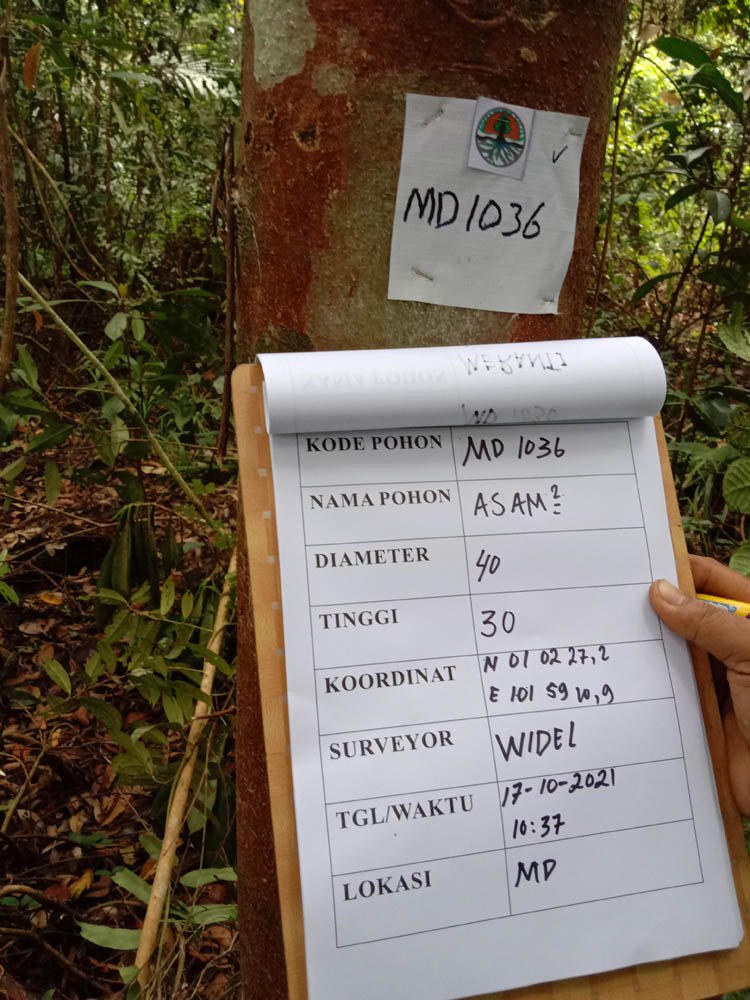 MD1036
KODE POHON MD 1036
NAMA POHON ASAM²
DIAMETER 40
TINGGI 30
KOORDINAT N 01 02 27,2
E 101 59 10,9
SURVEYOR WIDEL
TGL/WAKTU 17-10-2021
10:37
LOKASI MD